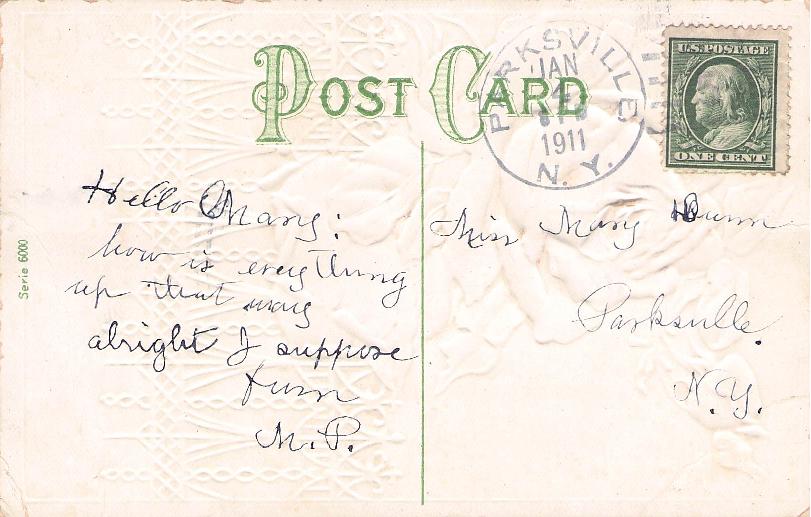 POST CARD
PARKSVILLE
JAN
1911
N. Y.
U.S. POSTAGE
ONE CENT
Hello Mary:
how is everything
up that way
alright I suppose
from
M. P.
Miss Mary
Parksville.
N. Y.
Serie 6000